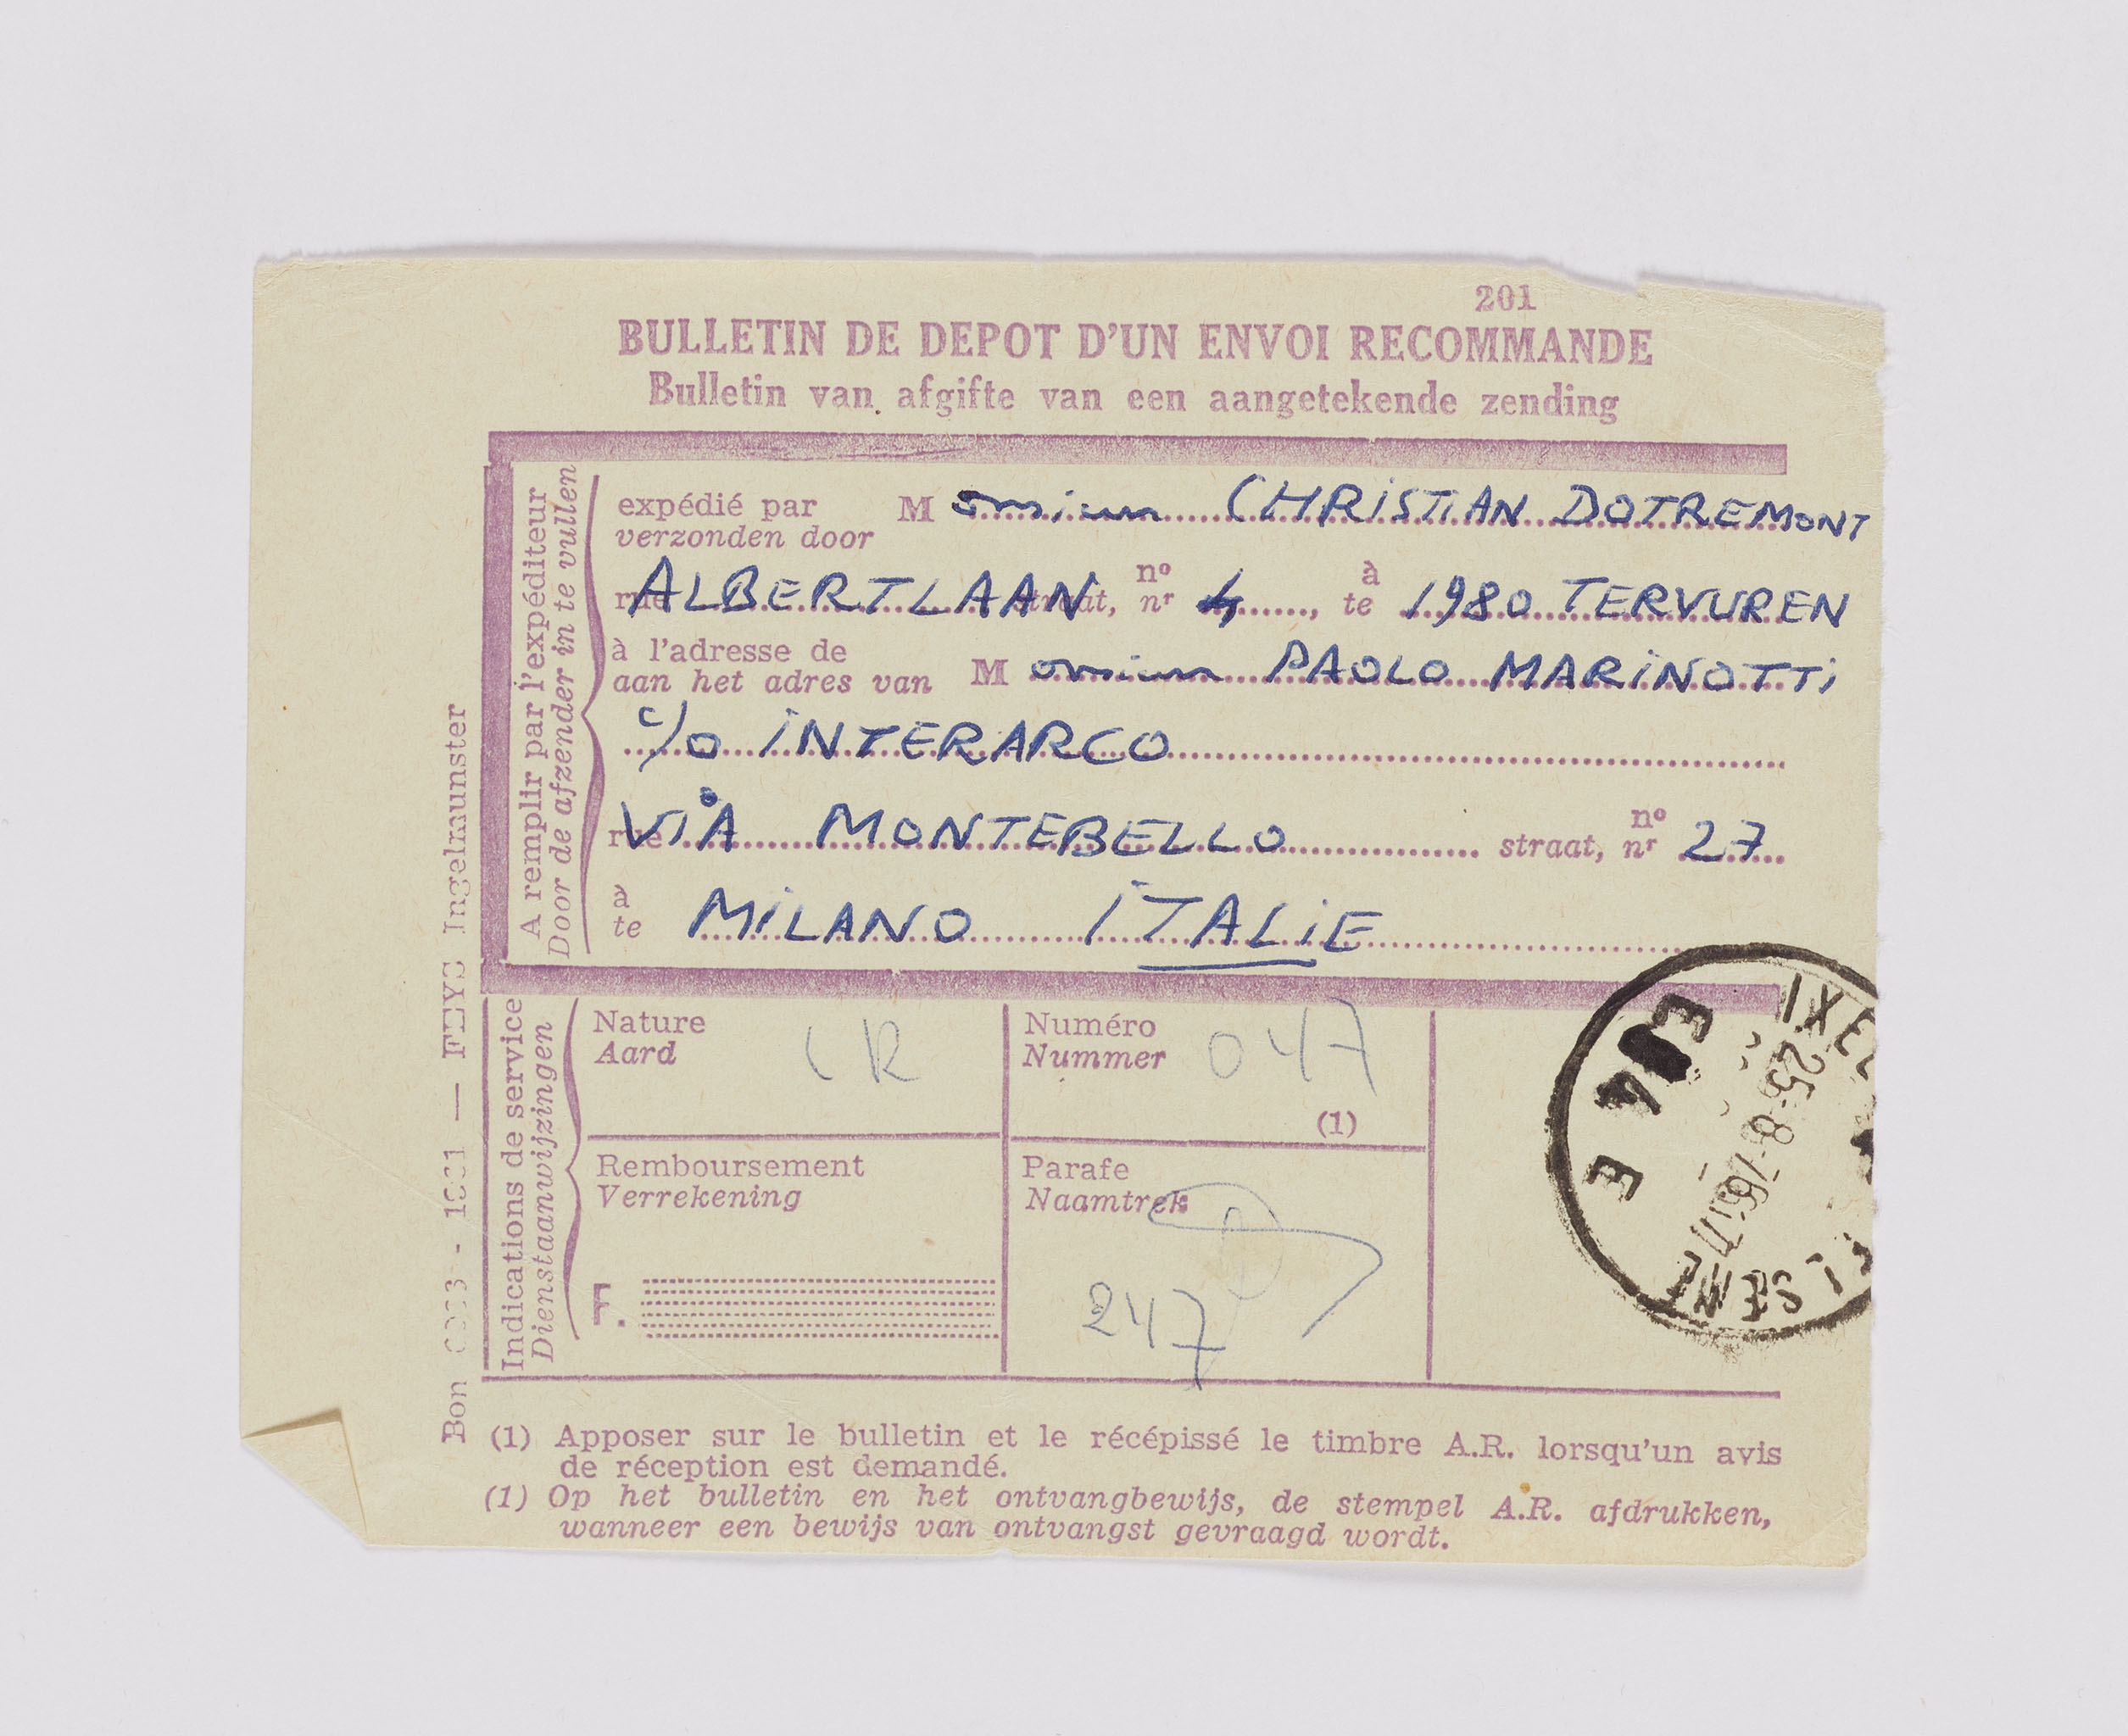 201
BULLETIN DE DEPOT D'UN ENVOI RECOMMANDE
Bulletin van afgifte van een aangetekende zending
A remplir par l'expéditeur
Door de afzender in te vullen
expédié par Monsieur CHRISTIAN DOTREMONT
verzonden door
rue ALBERTLAAN straat, nº nr 4, à te 1980 TERVUREN
à l'adresse de
aan het adres van Monsieur PAOLO MARINOTTI
c/o INTERARCO
rue VIA MONTEBELLO straat, nº nr 27
à
te MILANO ITALIE
Indications de service
Dienstaanwijzingen
Nature
Aard
R
Numéro
Nummer
047
(1)
Remboursement
Verrekening
F.
Parafe
Naamtrek
247
IXEL
25-8-76
E E
E
Bon
Ingelmunster
(1) Apposer sur le bulletin et le récépissé le timbre A.R. lorsqu'un avis
de réception est demandé.
(1) Op het bulletin en het ontvangbewijs, de stempel A.R. afdrukken,
wanneer een bewijs van ontvangst gevraagd wordt.